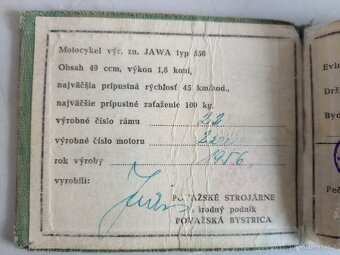 Motocykel výr. zn. JAWA typ 550
Obsah 49 ccm, výkon 1,6 koní,
najväčšia prípustná rýchlosť 45 km/hod.,
najväčšie prípustné zaťaženie 100 kg.
výrobné číslo rámu 22
výrobné číslo motoru
rok výroby 1956
vyrobili:
POVAŽSKÉ STROJÁRNE
národný podnik
POVAŽSKÁ BYSTRICA
Evi
Drž
Byd
Peč